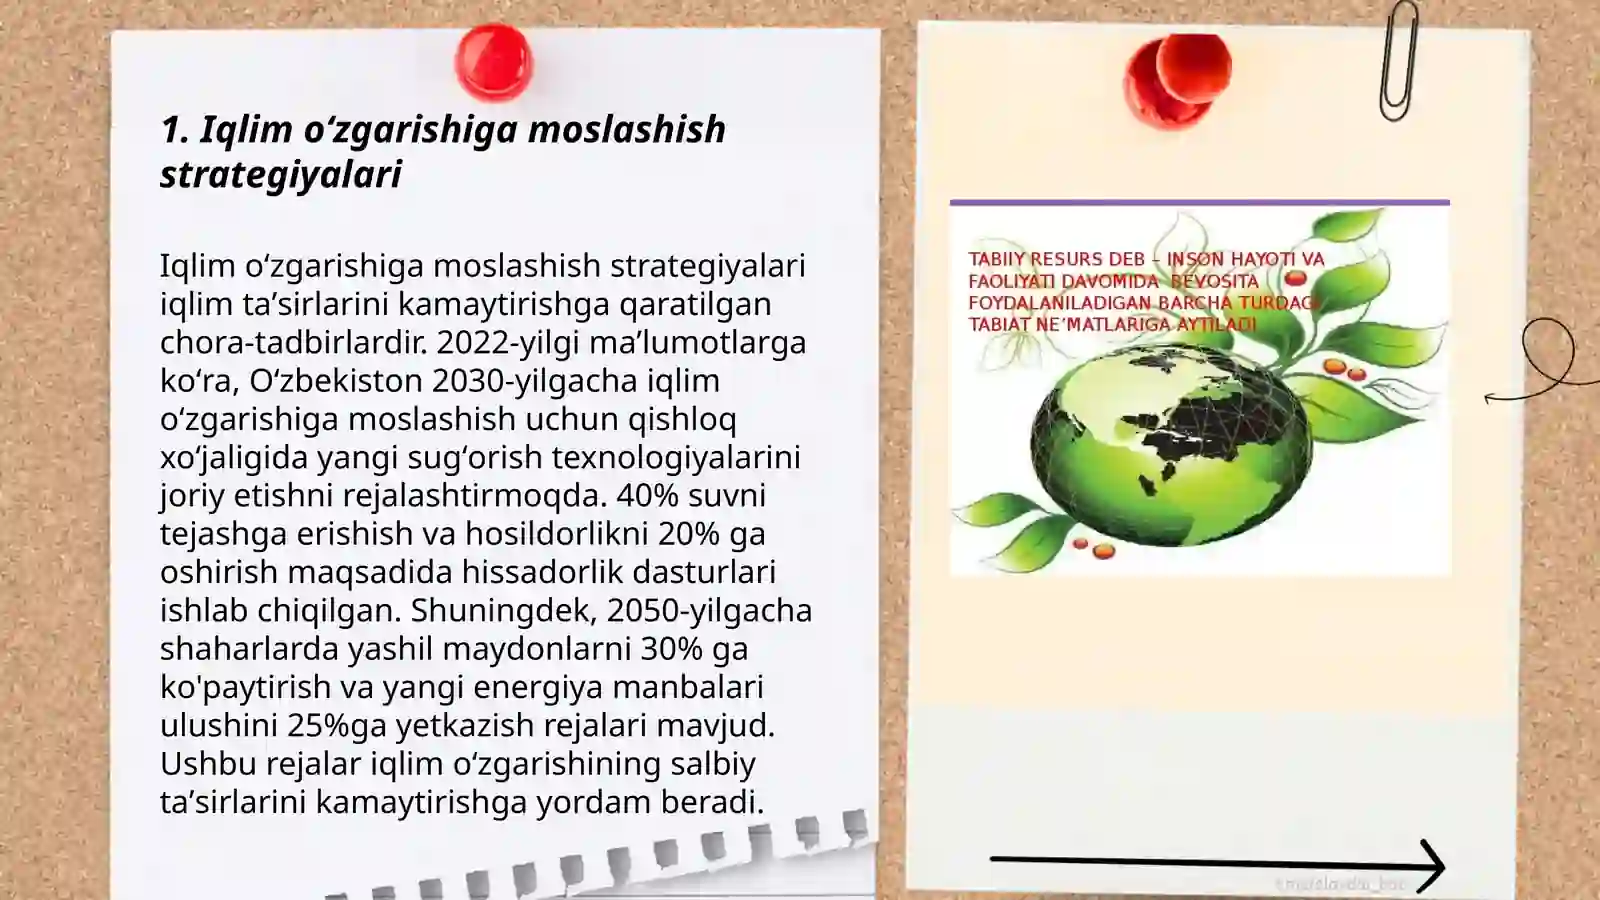 1. Iqlim o‘zgarishiga moslashish
strategiyalari
Iqlim o‘zgarishiga moslashish strategiyalari
iqlim ta’sirlarini kamaytirishga qaratilgan
chora-tadbirlardir. 2022-yilgi ma’lumotlarga
ko‘ra, O‘zbekiston 2030-yilgacha iqlim
o‘zgarishiga moslashish uchun qishloq
xo‘jaligida yangi sug‘orish texnologiyalarini
joriy etishni rejalashtirmoqda. 40% suvni
tejashga erishish va hosildorlikni 20% ga
oshirish maqsadida hissadorlik dasturlari
ishlab chiqilgan. Shuningdek, 2050-yilgacha
shaharlarda yashil maydonlarni 30% ga
ko'paytirish va yangi energiya manbalari
ulushini 25%ga yetkazish rejalari mavjud.
Ushbu rejalar iqlim o‘zgarishining salbiy
ta’sirlarini kamaytirishga yordam beradi.
TABIIY RESURS DEB – INSON HAYOTI VA
FAOLIYATI DAVOMIDA BEVOSITA
FOYDALANILADIGAN BARCHA TURDAGI
TABIAT NE’MATLARIGA AYTILADI